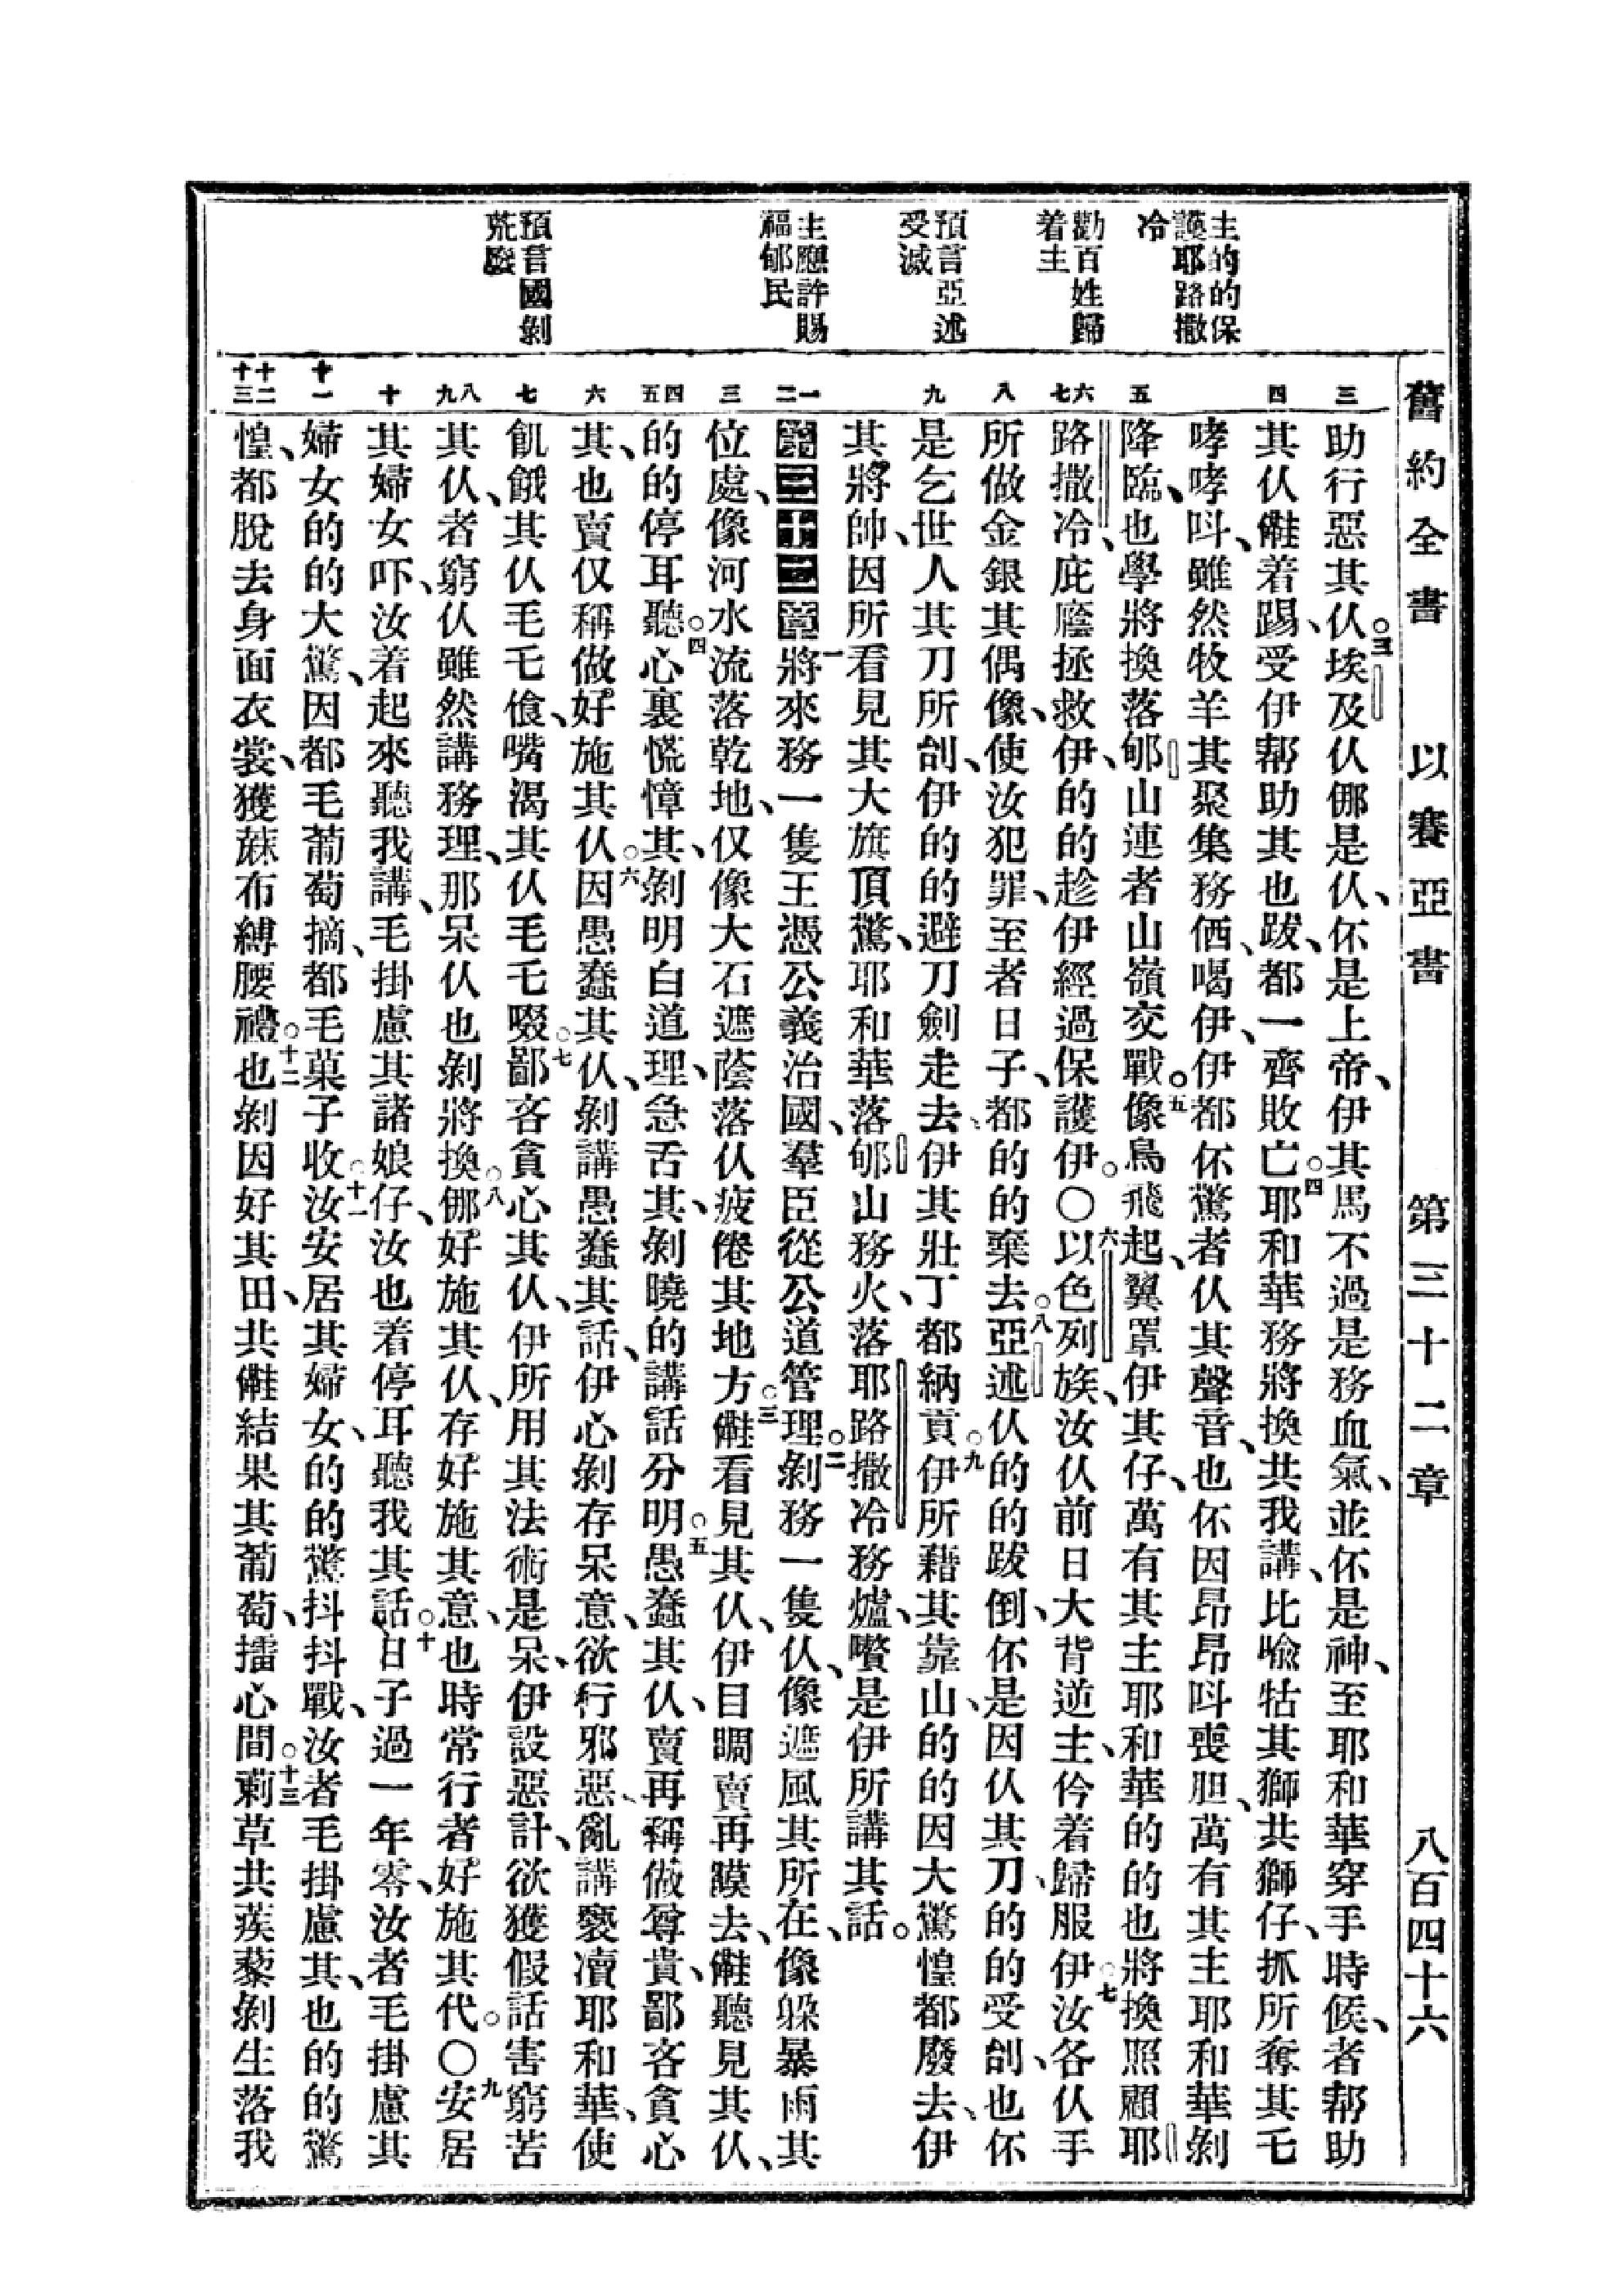 舊約全書 以賽亞書 第三十二章 八百四十六
主的的保
護耶路撒
冷
勸百姓歸
着主
預言亞述
受滅
主應許賜
福郇民
預言國剝
荒廢
三
四
五
六
七
八
九
一
二
三
四
五
六
七
八
九
十
十一
十二
十三
助行惡其仈。三埃及仈㑚是仈、伓是上帝、伊其馬不過是務血氣、並伓是神、至耶和華穿手時候、者帮助
其仈、㒰着踢、受伊帮助其也跋、都一齊敗亡。四耶和華務將換共我講、比喻牯其獅共獅仔、抓所奪其乇
哮哮呌、雖然牧羊其聚集務㐽喝伊、伊都伓驚者仈其聲音、也伓因昂昂呌喪胆、萬有其主耶和華剝
降臨、也學將換落郇山連者山嶺交戰。五像鳥飛起、翼罩伊其仔、萬有其主耶和華的的也將換照顧耶
路撒冷、庇廕拯救伊、的的趁伊經過保護伊。〇六以色列族、汝仈前日大背逆主、伶着歸服伊。七汝各仈手
所做金銀其偶像、使汝犯罪、至者日子、都的的棄去。八亞述仈的的跋倒、伓是因仈其刀、的的受刣、也伓
是乞世人其刀所刣、伊的的避刀劍走去、伊其壯丁都納貢。九伊所藉其靠山、的的因大驚惶都廢去、伊
其將帥、因所看見其大旗頂驚、耶和華落郇山務火、落耶路撒冷務爐、嚽是伊所講其話。
第三十二章 一將來務一隻王、憑公義治國、羣臣從公道管理。二剝務一隻仈、像遮風其所在、像躲暴雨其
位處、像河水流落乾地、仅像大石遮蔭落仈疲倦其地方。三㒰看見其仈、伊目睭賣再矇去、㒰聽見其仈、
的的停耳聽。四心裏慌慞其、剝明白道理、急舌其、剝曉的講話分明。五愚蠢其仈、賣再稱做尊貴、鄙吝貪心
其、也賣仅稱做好施其仈。六因愚蠢其仈、剝講愚蠢其話、伊心剝存呆意、欲行邪惡、亂講褻凟耶和華、使
飢餓其仈毛乇飡、嘴渴其仈毛乇啜。七鄙吝貪心其仈、伊所用其法術是呆、伊設惡計、欲獲假話害窮苦
其仈、者窮仈雖然講務理、那呆仈也剝將換㑚。八好施其仈、存好施其意、也時常行者好施其代。〇九安居
其婦女吓、汝着起來聽我講、毛掛慮其諸娘仔、汝也着停耳聽我其話。十日子過一年零、汝者毛掛慮其
婦女的的大驚、因都毛葡萄摘、都毛菓子收。十一汝安居其婦女、的的驚抖抖戰、汝者毛掛慮其、也的的驚
惶、都脫去身面衣裳、獲蔴布縛腰禮。十二也剝因好其田、共㒰結果其葡萄、擂心間。十三莿草共蒺藜剝生落我